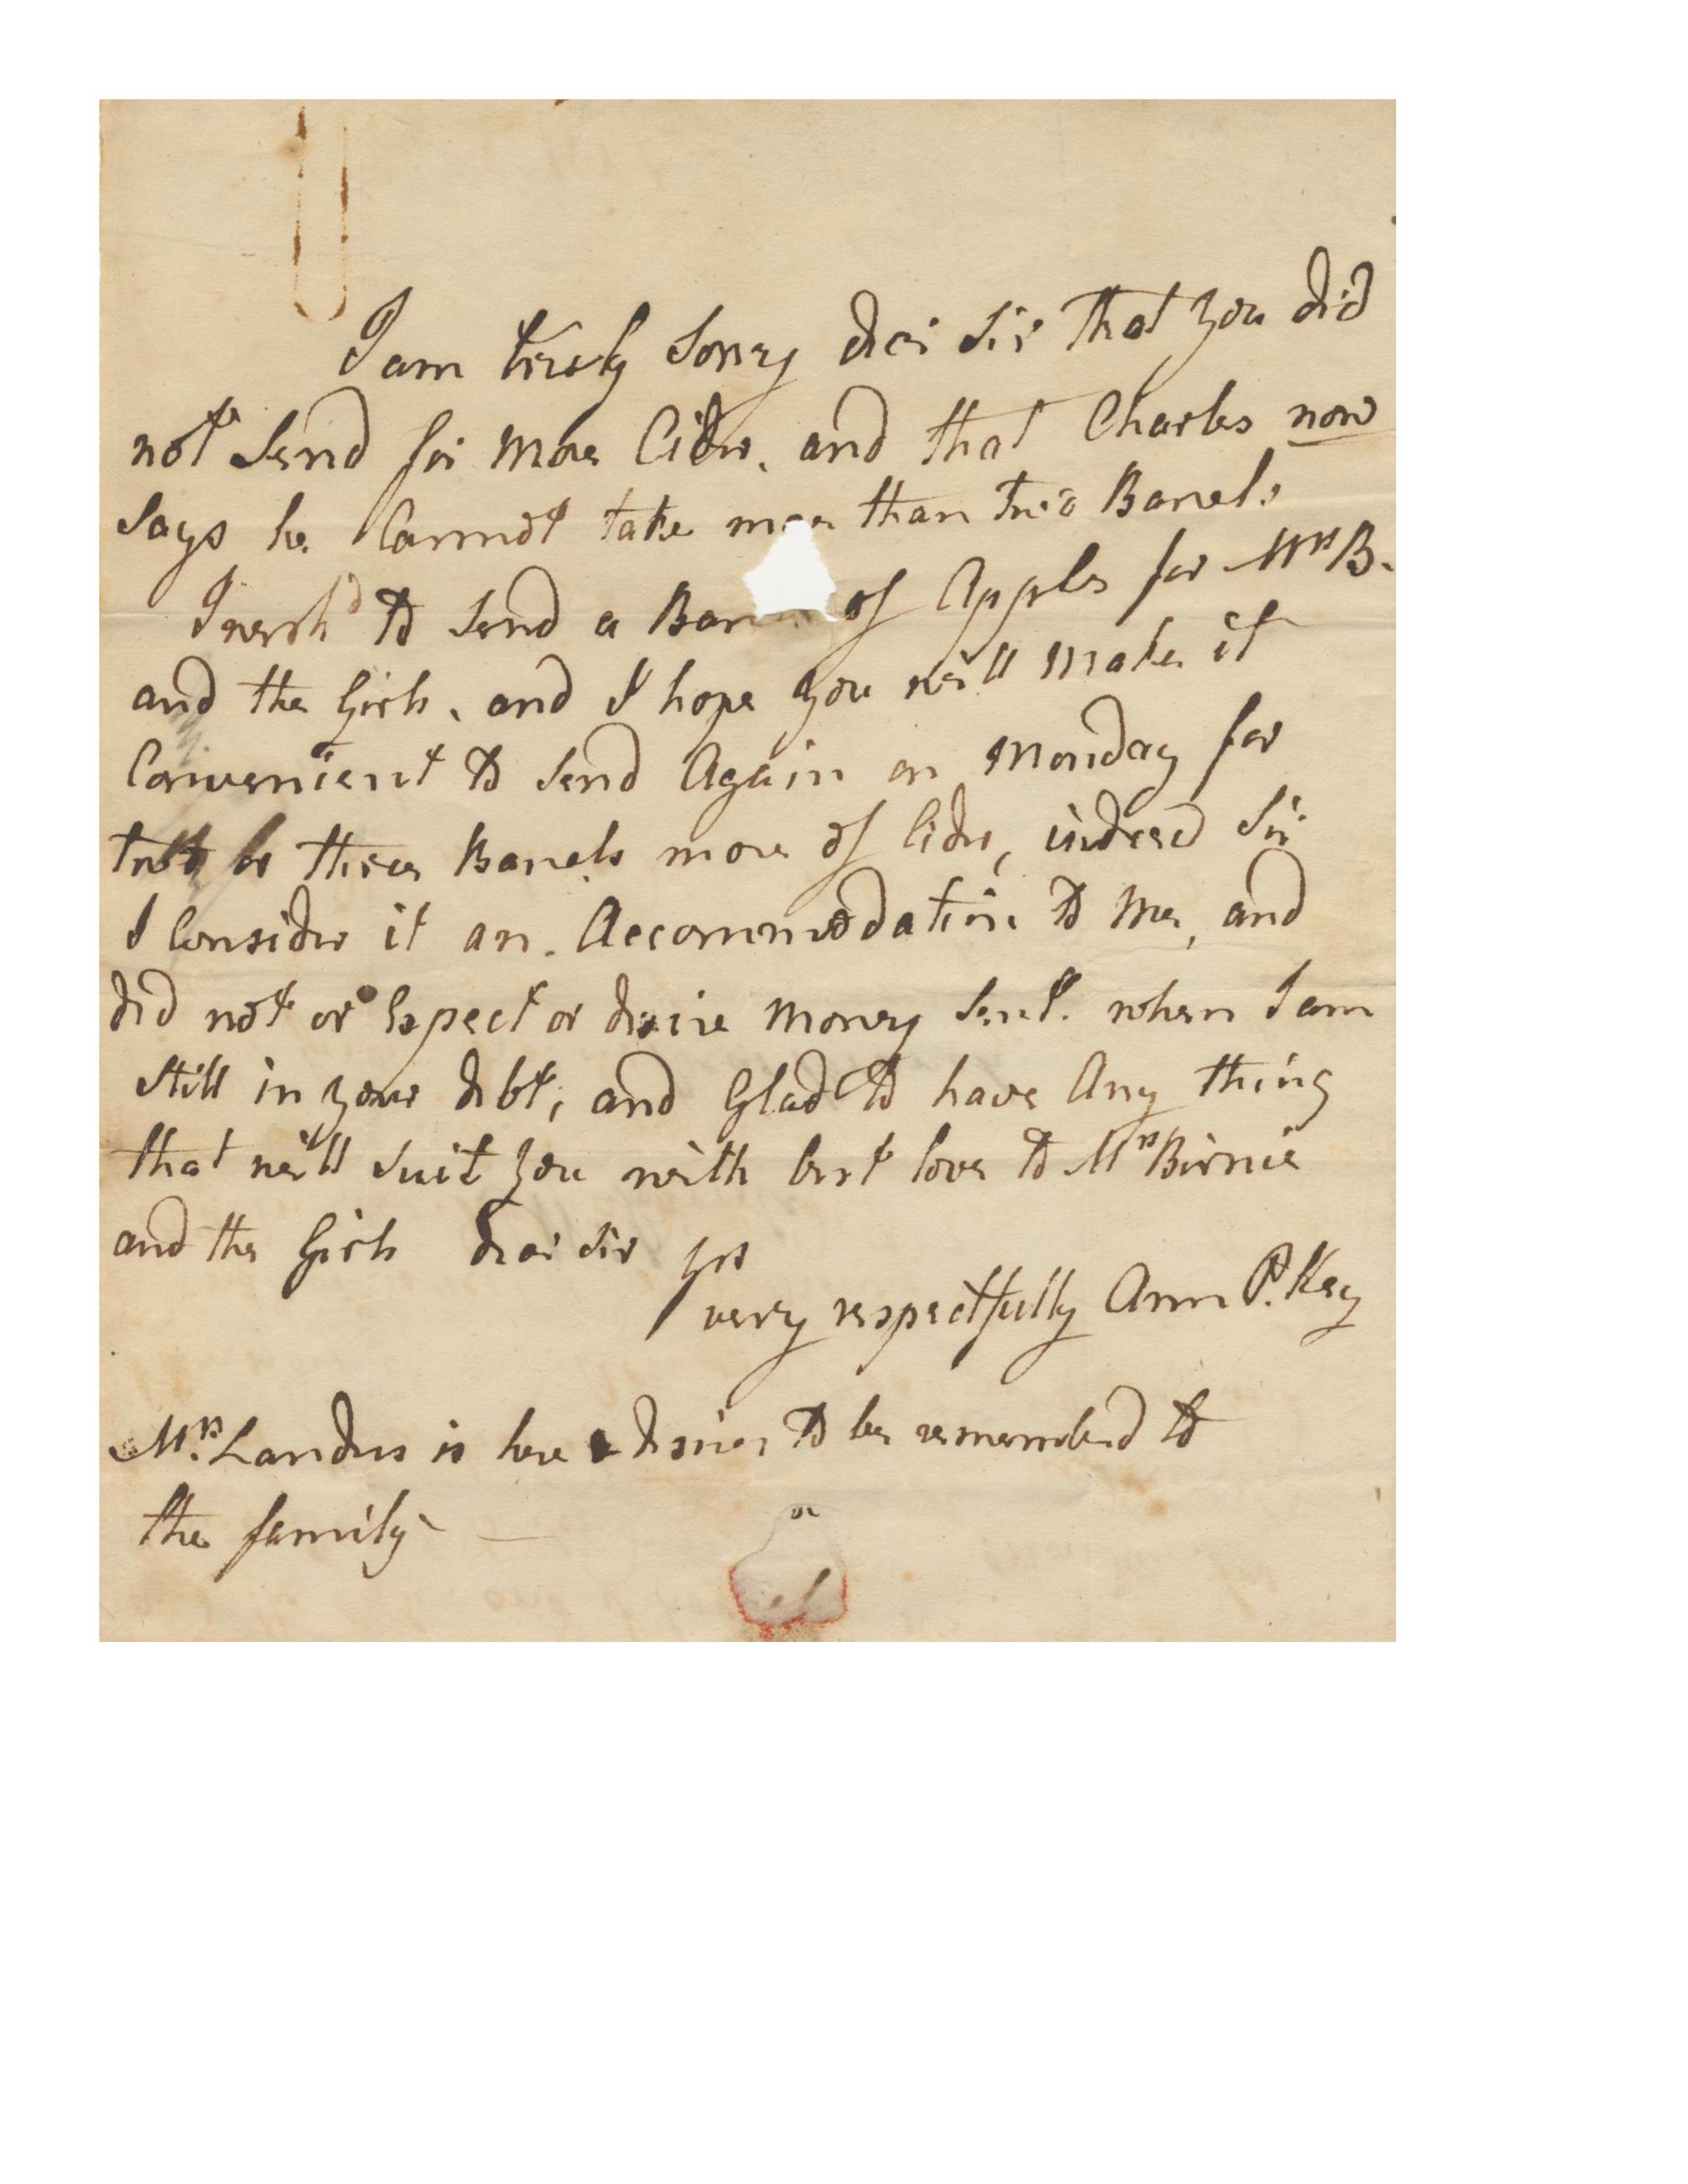 I am truly sorry dear Sir that you did
not Send for More Cider. and that Charles now
Says he Cannot take more than two Barrels
I wish'd to Send a Bar of Apples for Mrs B.
and the Girls, and I hope you will make it
Convenient to Send Again on Monday for
two or three Barrels more of Cider, indeed Sir
I Consider it an Accommodation to me, and
did not or Expect or desire money Sent. when I am
Still in your debt, and Glad to have Any thing
that will Suit you with best love to Mrs Birnie
and the Girls dear Sir yrs
very respectfully Ann P. Key
Mrs. Landers is here desires to be remembered to
the family